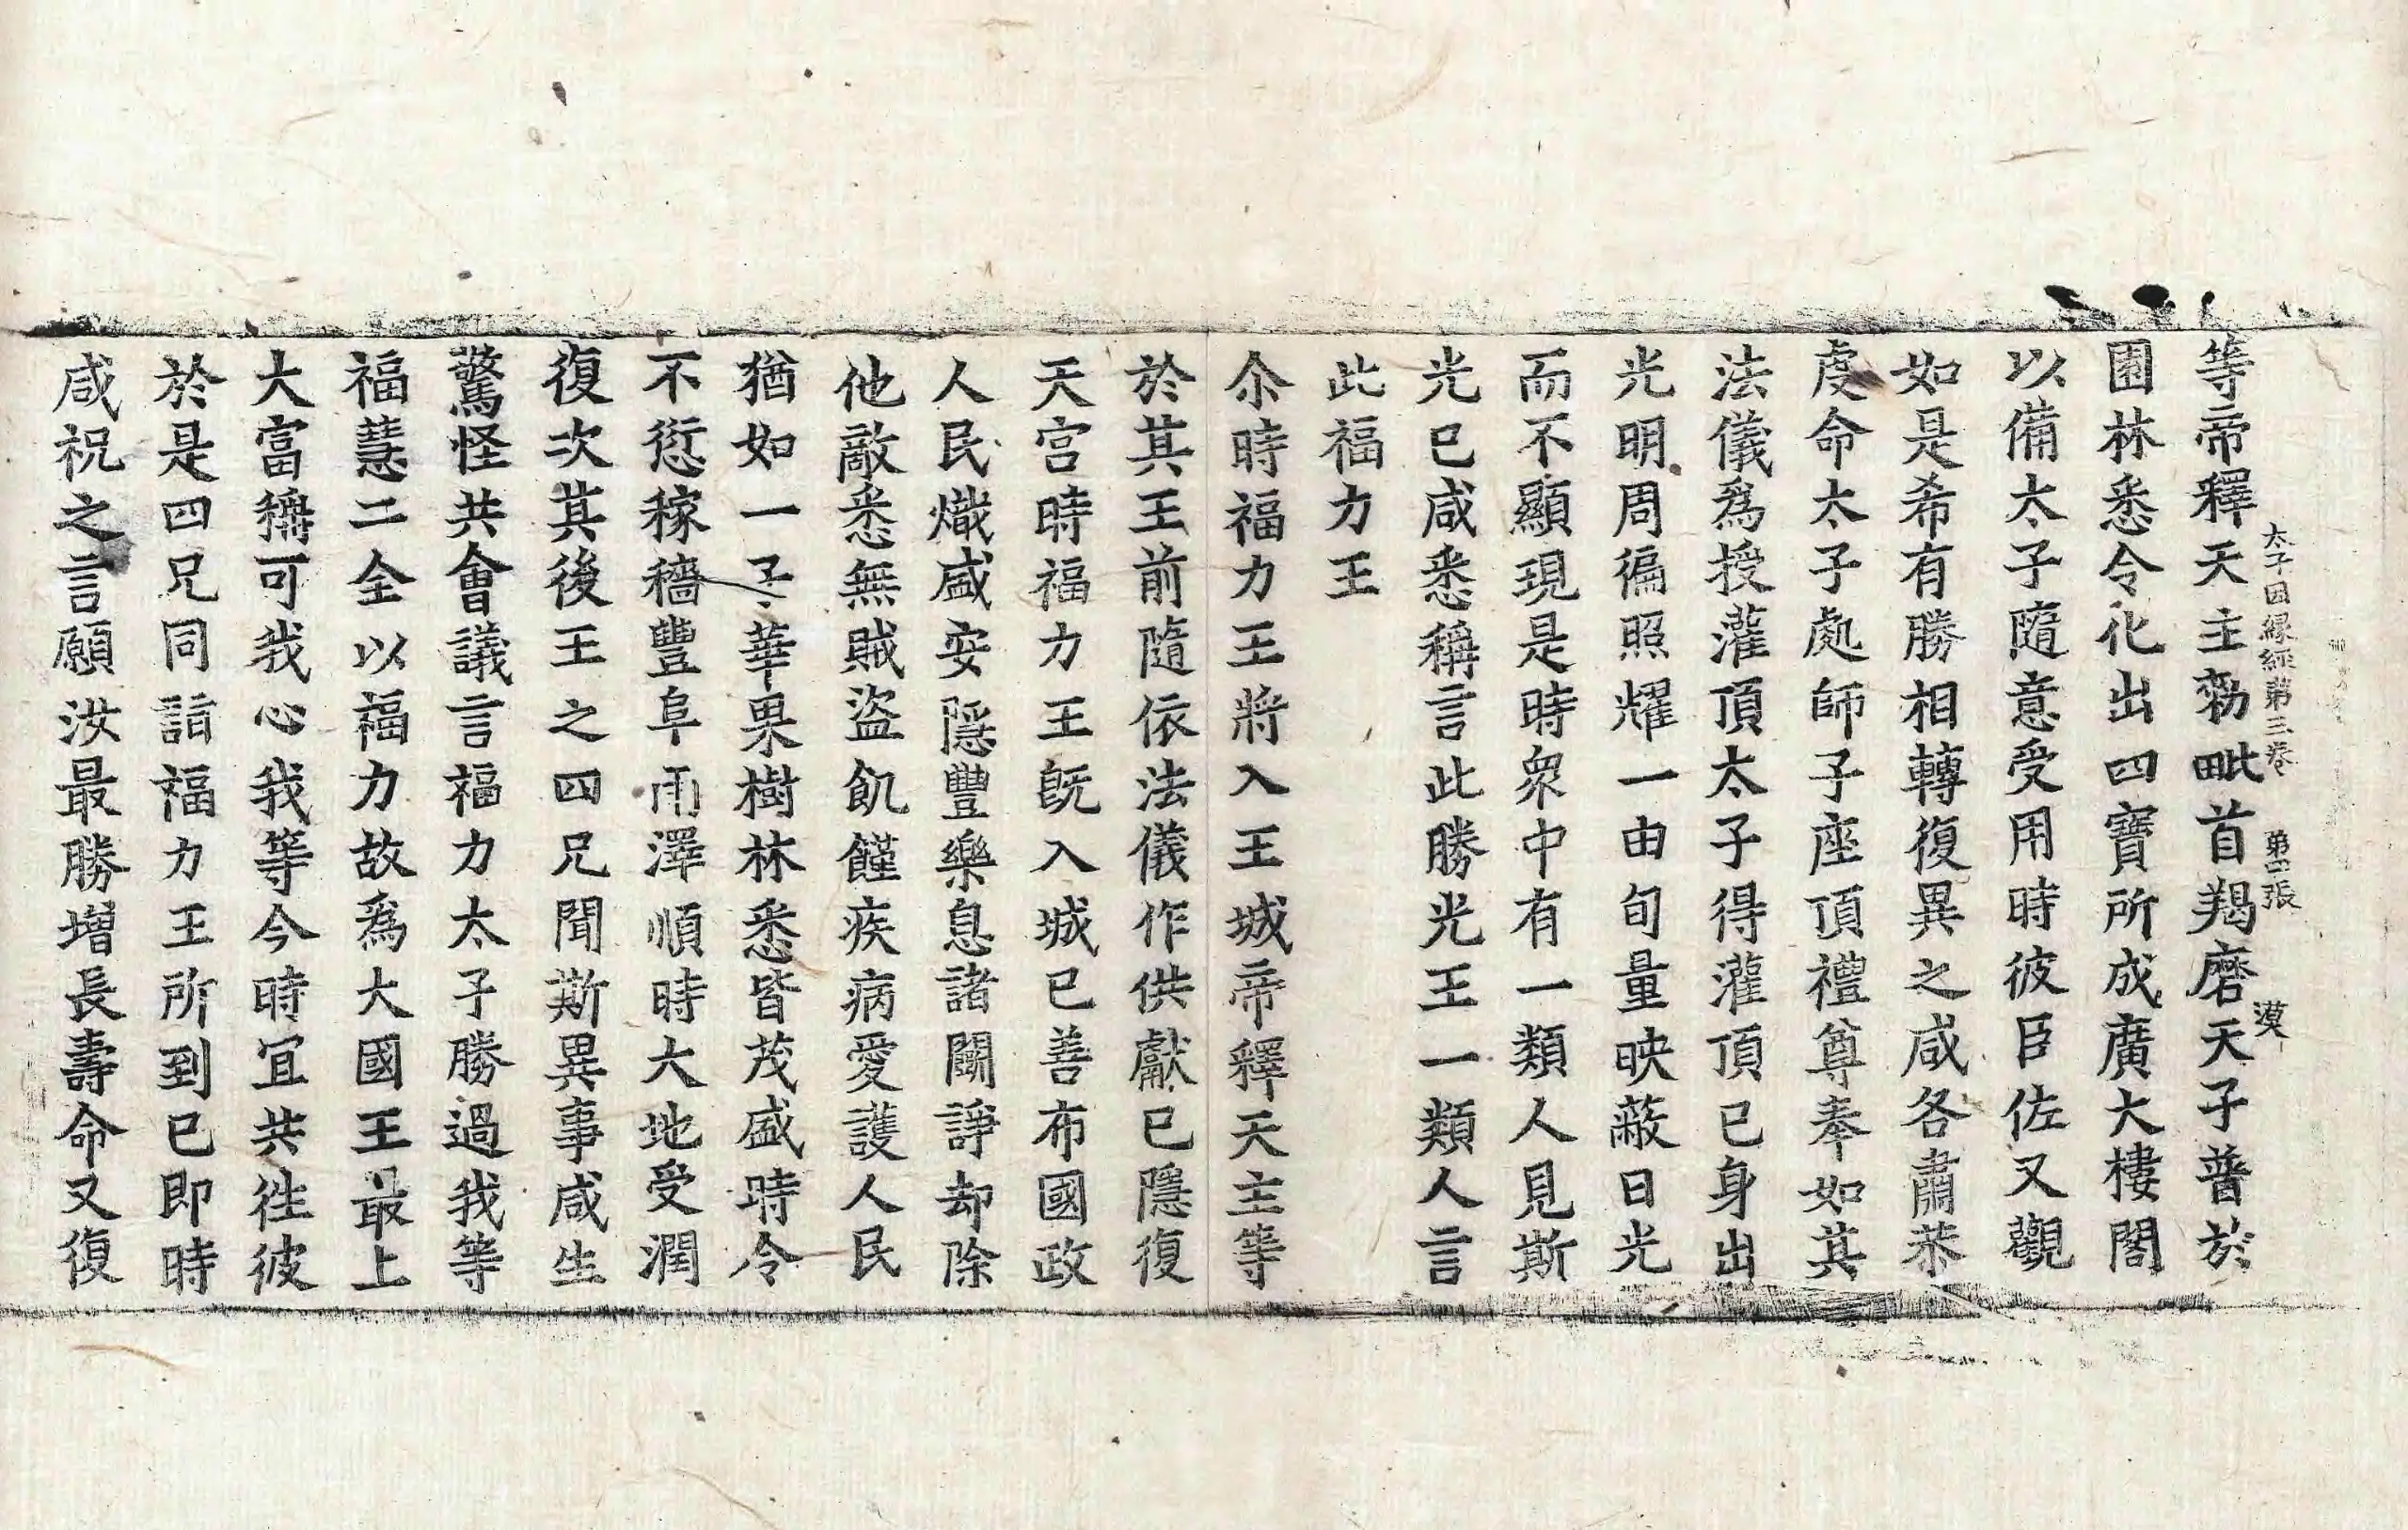 太子因緣經第三卷 第四張 漠
等帝釋天主勑毗首羯磨天子普於
園林悉令化出四寶所成廣大樓閣
以備太子隨意受用時彼臣佐又觀
如是希有勝相轉復異之咸各肅恭
虔命太子處師子座頂禮尊奉如其
法儀爲授灌頂太子得灌頂已身出
光明周徧照耀一由旬量映蔽日光
而不顯現是時衆中有一類人見斯
光已咸悉稱言此勝光王一類人言
此福力王
尒時福力王將入王城帝釋天主等
於其王前隨依法儀作供獻已隱復
天宮時福力王旣入城已善布國政
人民熾盛安隱豐樂息諸鬭諍却除
他敵悉無賊盜飢饉疾病愛護人民
猶如一子華果樹林悉皆茂盛時令
不愆稼穡豐阜雨澤順時大地受潤
復次其後王之四兄聞斯異事咸生
驚怪共會議言福力太子勝過我等
福慧二全以福力故爲大國王最上
大富稱可我心我等今時宜共徃彼
於是四兄同詣福力王所到已即時
咸祝之言願汝最勝增長壽命又復